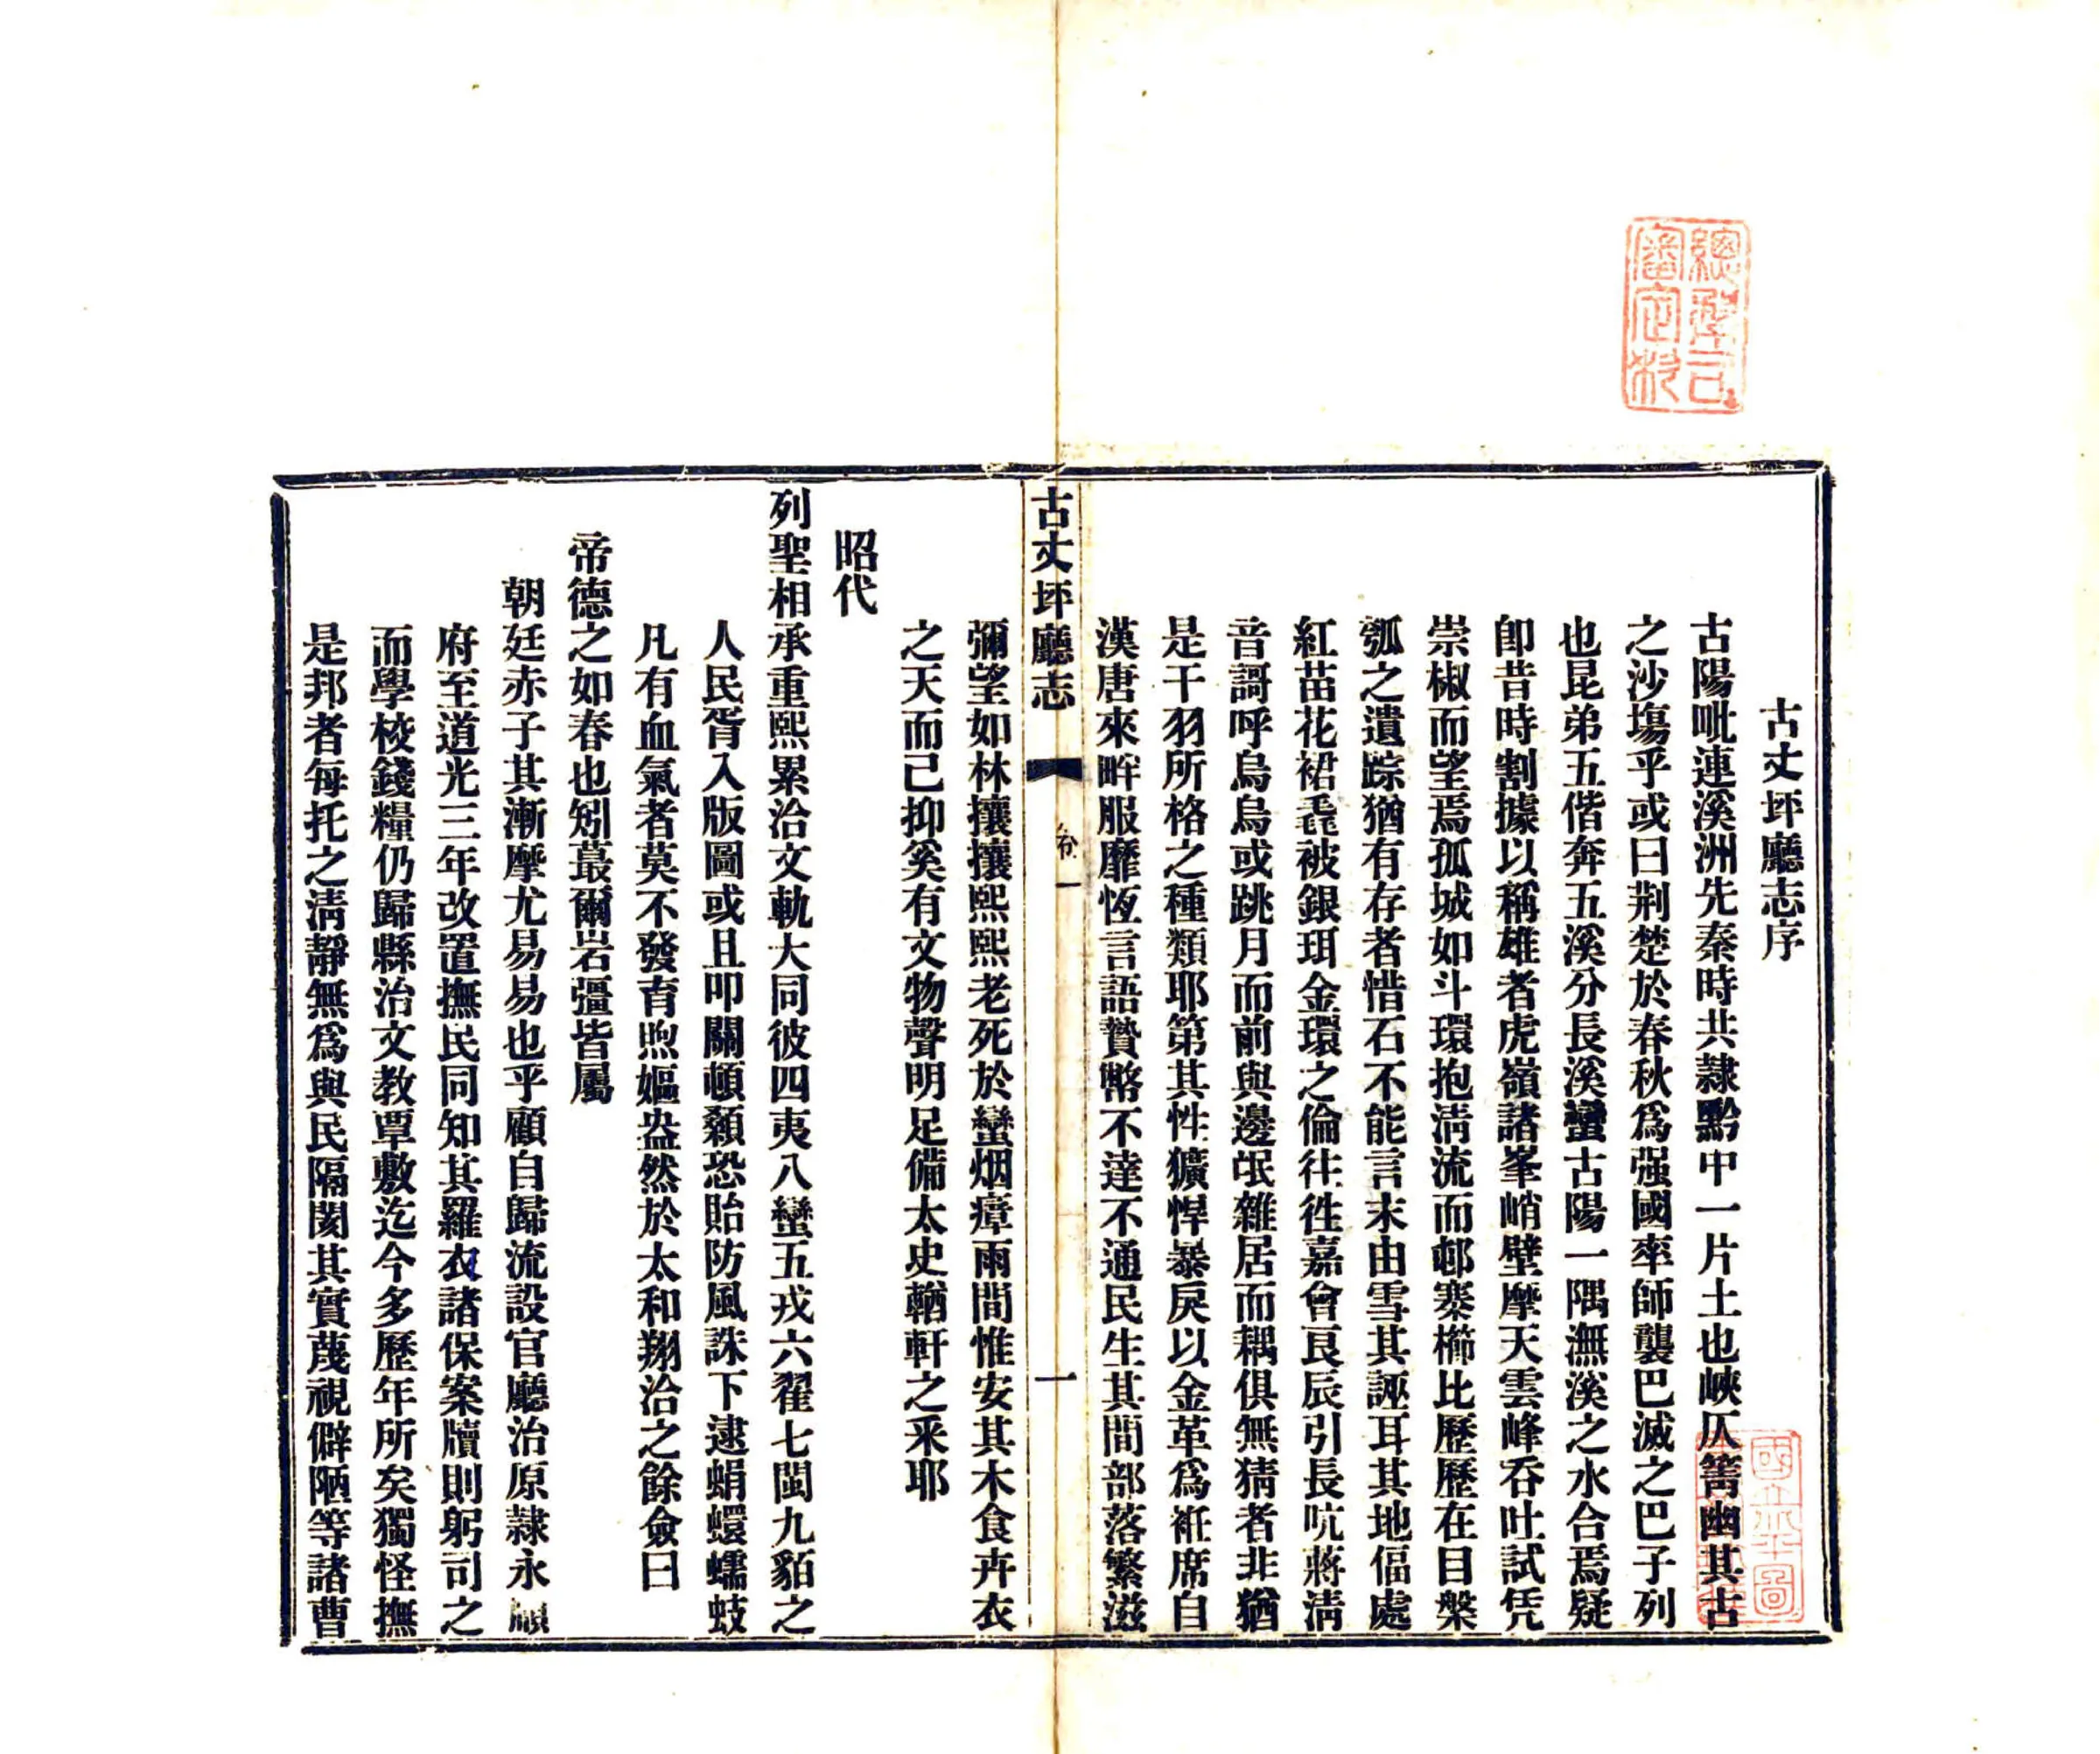 古丈坪廳志序
古陽毗連溪洲先秦時共隸黔中一片土也峽仄箐幽其古
之沙塲乎或曰荆楚於春秋爲强國率師襲巴滅之巴子列
也昆弟五偕奔五溪分長溪蠻古陽一隅潕溪之水合焉疑
卽昔時割據以稱雄者虎嶺諸峯峭壁摩天雲峰吞吐試凭
崇椒而望焉孤城如斗環抱淸流而邨寨櫛比歷歷在目槃
瓠之遺踪猶有存者惜石不能言末由雪其誣耳其地偪處
紅苗花裙毳被銀珥金環之倫往徃嘉會良辰引長吭蔣淸
音謌呼烏烏或跳月而前與邊氓雜居而耦俱無猜者非猶
是干羽所格之種類耶第其性獷悍暴戾以金革爲袵席自
漢唐來畔服靡恆言語贄幣不達不通民生其間部落繁滋
古丈坪廳志 卷一 一
彌望如林攘攘熙熙老死於蠻烟瘴雨間惟安其木食卉衣
之天而已抑奚有文物聲明足備太史輶軒之釆耶
昭代
列聖相承重熙累洽文軌大同彼四夷八蠻五戎六翟七閩九貊之
人民胥入版圖或且叩關頓顙恐貽防風誅下逮蜎蠉蠕蚑
凡有血氣者莫不發育煦嫗盎然於太和翔洽之餘僉曰
帝德之如春也矧蕞爾岩彊皆屬
朝廷赤子其漸摩尤易易也乎顧自歸流設官廳治原隸永順
府至道光三年改置撫民同知其羅衣諸保案牘則躬司之
而學校錢糧仍歸縣治文教覃敷迄今多歷年所矣獨怪撫
是邦者每托之淸靜無爲與民隔閡其實蔑視僻陋等諸曹
總理司
審定彩